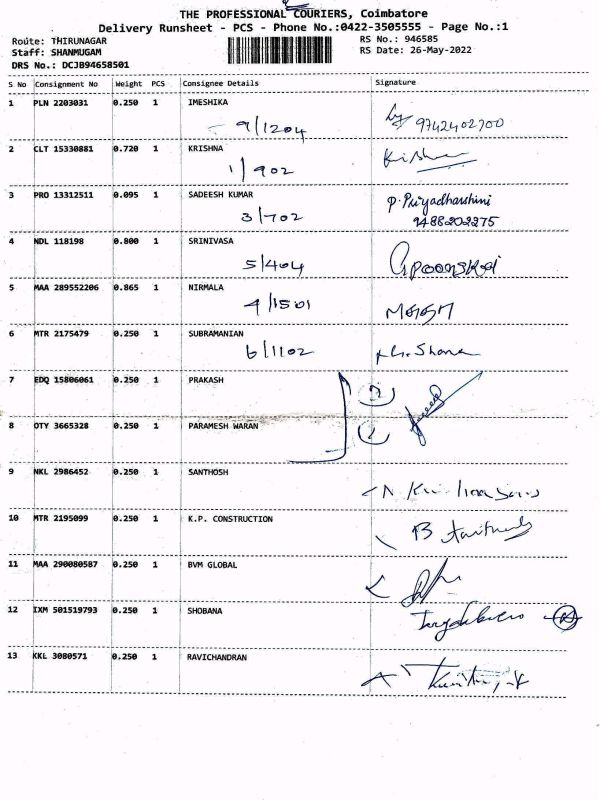 THE PROFESSIONAL COURIERS, Coimbatore
Delivery Runsheet - PCS - Phone No.:0422-3505555 - Page No.:1
Route: THIRUNAGAR
Staff: SHANMUGAM
DRS No.: DCJB94658501
RS No.: 946585
RS Date: 26-May-2022
S No Consignment No Weight PCS Consignee Details Signature
1 PLN 2203031 0.250 1 IMESHIKA
9/1204 9742402700
2 CLT 15330881 0.720 1 KRISHNA
1/902 Krishna
3 PRO 13312511 0.095 1 SADEESH KUMAR P. Priyadharshini
3/702 9488202275
4 NDL 118198 0.800 1 SRINIVASA
5/404
5 MAA 289552206 0.865 1 NIRMALA
4/1501
6 MTR 2175479 0.250 1 SUBRAMANIAN
6/1102
7 EDQ 15806061 0.250 1 PRAKASH
8 OTY 3665328 0.250 1 PARAMESH WARAN
9 NKL 2986452 0.250 1 SANTHOSH
10 MTR 2195099 0.250 1 K.P. CONSTRUCTION
11 MAA 290080587 0.250 1 BVM GLOBAL
12 IXM 501519793 0.250 1 SHOBANA
13 KKL 3080571 0.250 1 RAVICHANDRAN